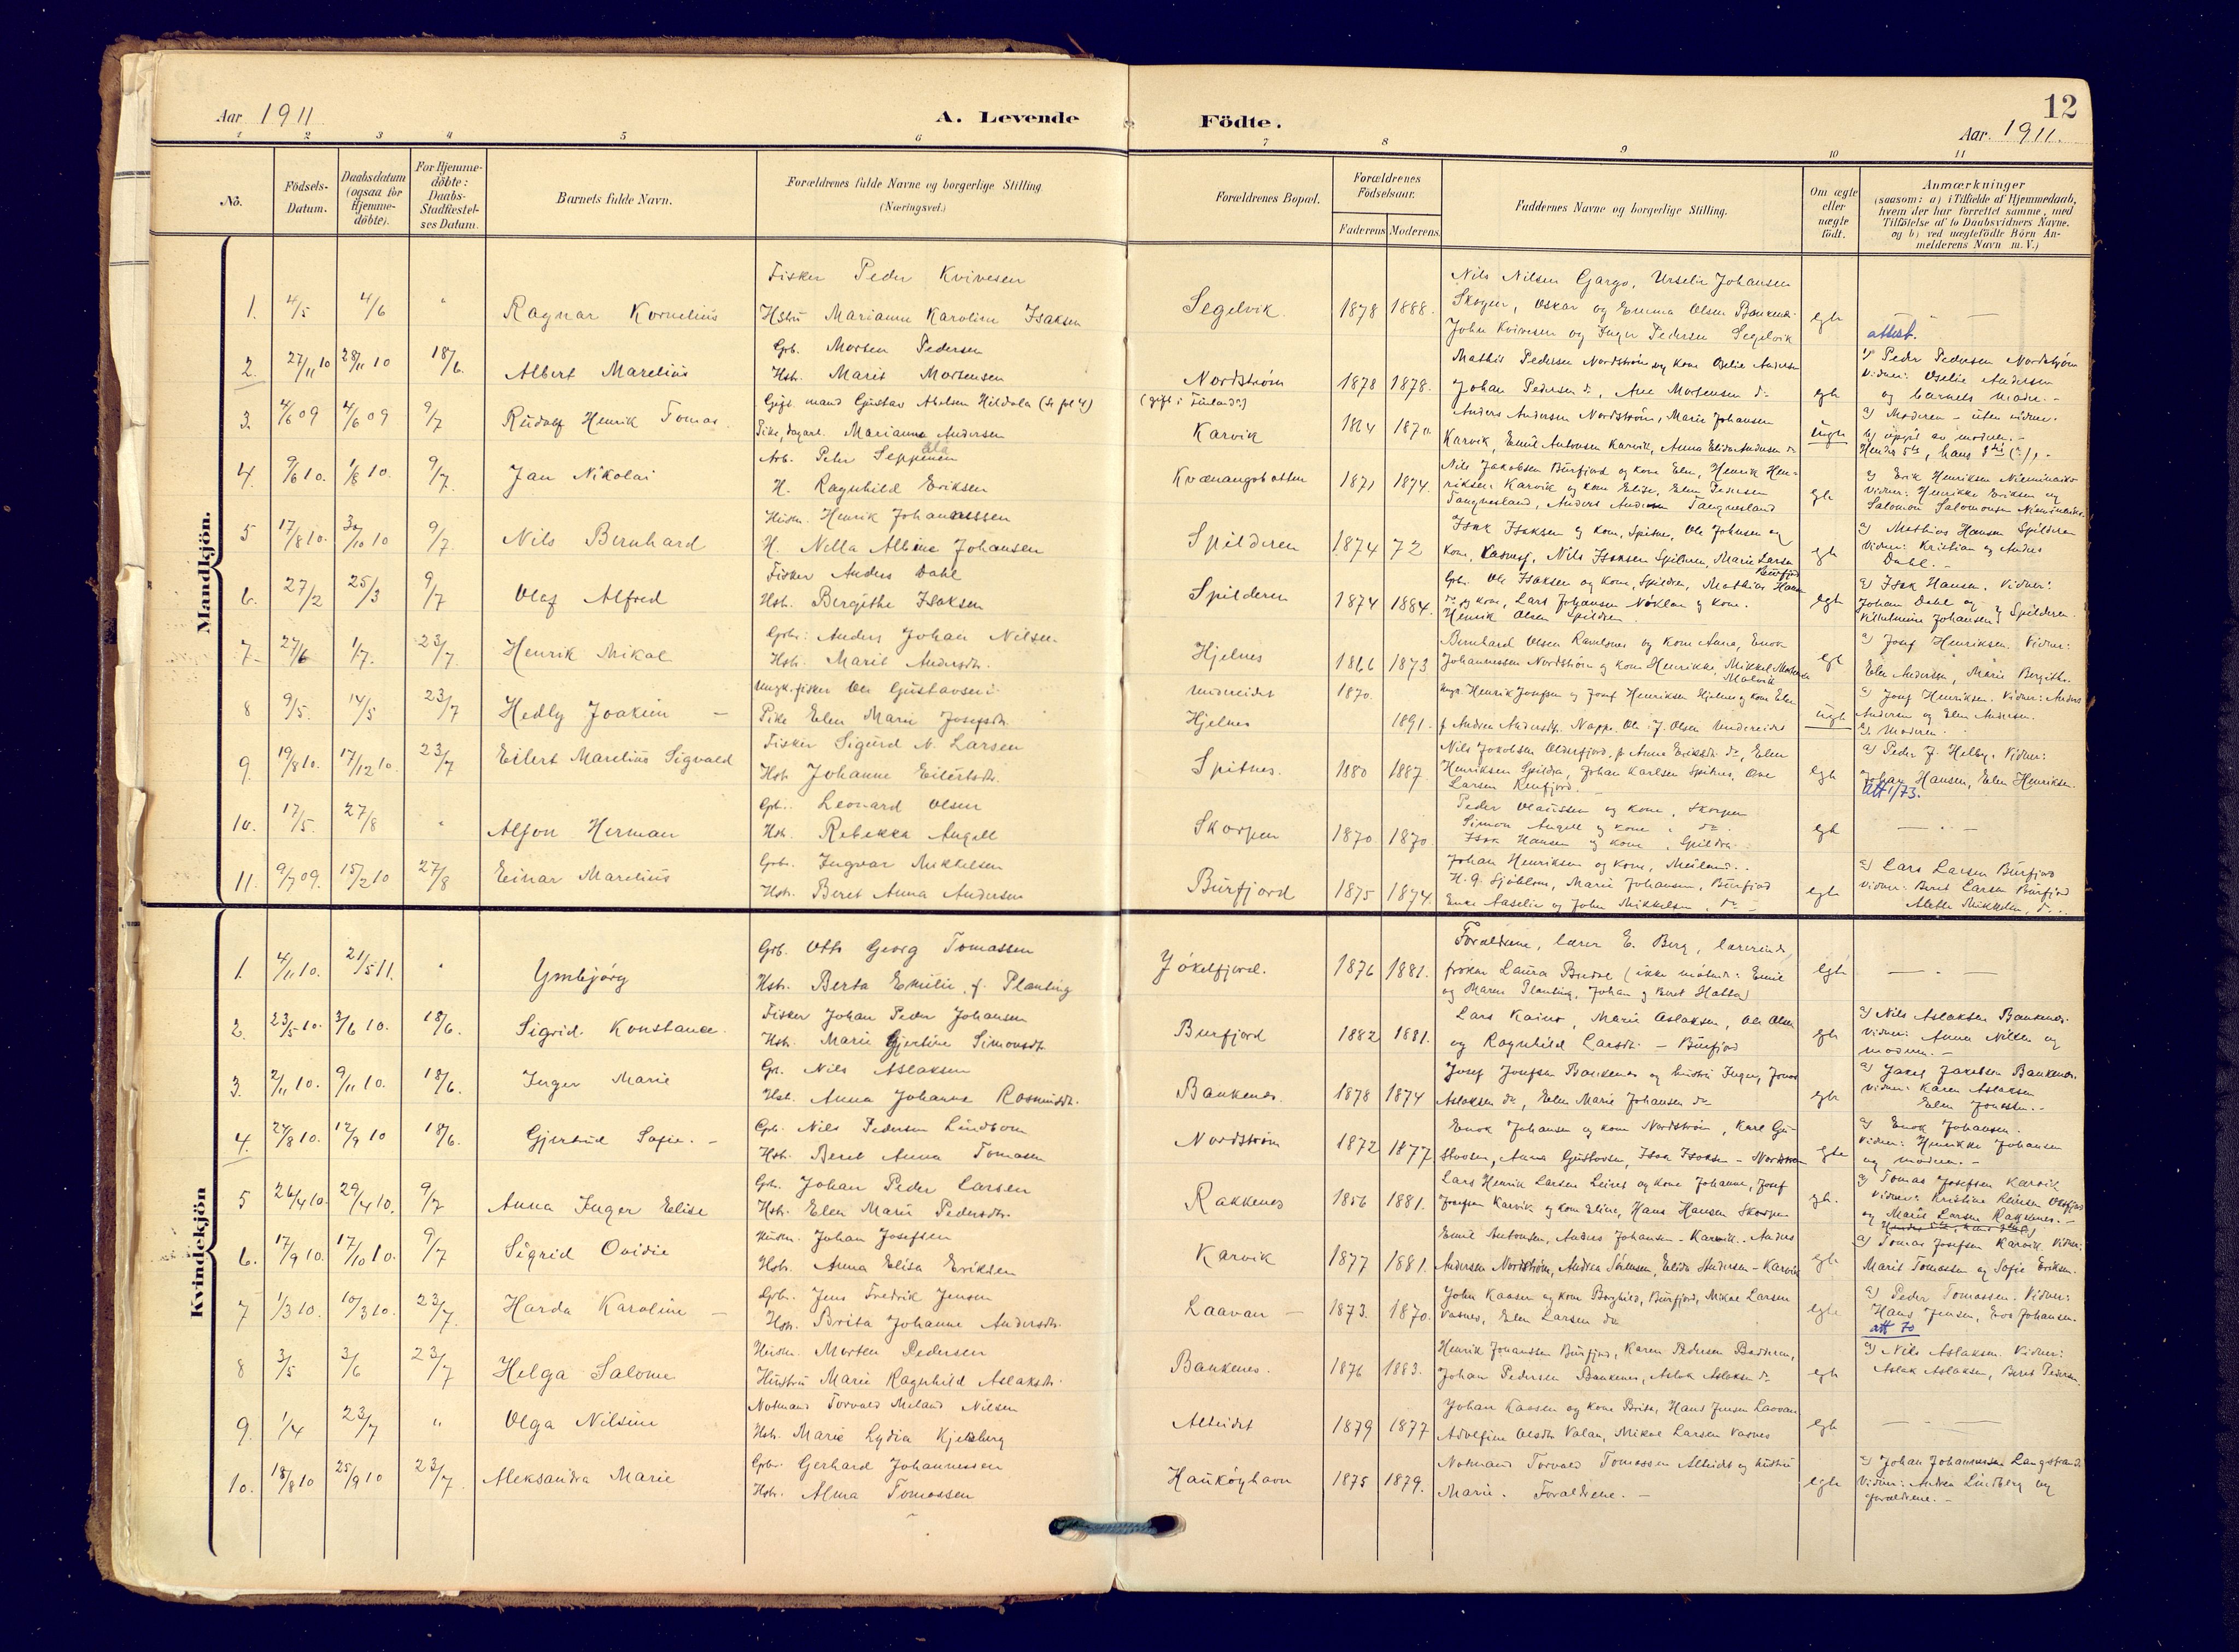 12
Aar 1911
A. Levende
Födte.
Aar. 1911.
1 2 3 4 5 6 7 8 9 10 11
No.
Födsels-Datum.
Daabsdatum (ogsaa for Hjemme-döbte).
For Hjemme-döbte: Daabs-Stadfæstel-ses Datum.
Barnets fulde Navn.
Forældrenes fulde Navne og borgerlige Stilling. (Næringsvei.)
Forældrenes Bopæl.
Forældrenes Födselsaar.
Faderens Moderens.
Faddernes Navne og borgerlige Stilling.
Om ægte eller uægte födt.
Anmærkninger (saasom: a) i Tilfælde af Hjemmedaab, hvem der har forrettet samme, med Tilföielse af to Daabsvidners Navne. og b) ved uægtefödte Börn An-melderens Navn m. V.)
Mandkjön.
1. 4/5 4/6 " Ragnar Kornelius
Fisker Peder Kvivesen
Hstru Marianne Karoline Isaksen
Segelvik. 1878 1888.
Nils Nilsen Gargo, Urselie Johansen
Skogen, Oskar og Emma Olsen Bankenes
John Kvivesen og Inger Pedersen Segelvik
egte — " —
attest.
2. 27/11 10 28/11 10 18/6. Albert Marelius
Grb. Morten Pedersen
Hstr. Marit Mortensen
Nordström 1878 1878.
Mathis Pedersen Nordström og kone Oselie Andersen
Johan Pedersen do, Ane Mortensen do
egte
a) Peder Pedersen Nordström
Vidner: Oselie Andersen
og barnets moder. -
3. 4/6 09 4/6 09 9/7 Rudolf Henrik Tomas.
Gift mand Gustav Abelsen Hildola (se pkt 4)
Pike, dagarb. Marianna Andersen
(gift i Finland?)
Karvik 1864 1870.
Anders Andersen Nordström, Marie Johansen
Karvik, Emil Antonsen Karvik, Anna Elida Andersen do
uegte
a) Moderen - uten vidner.
b) opgit av moderen. -
Hendes 5te, hans 8de (?), -
4. 9/6 10. 1/8 10. 9/7. Jan Nikolai
Arb. Peter Seppenen
H. Ragnhild Eriksen
Kvænangsbotten 1871 1874.
Nils Jakobsen Burfjord og kone Elen, Henrik Hen-
riksen Karvik og kone Elise, Elen Pedersen
Tangnesland, Anders Andersen Tangnesland
egte
a) Erik Henriksen Nieminaiko
Vidner: Henrikke Eriksen og
Salomon Salomonsen Nieminaiko.
5 17/8 10. 30/10 10 9/7. Nils Bernhard
Husm. Henrik Johannessen
H. Nella Albine Johansen
Spilderen 1874 72
Isak Isaksen og kone, Spitnes, Ole Johnsen og
kone, Vasnesf, Nils Isaksen Spilderen, Marie Larsen
Burfjord
egte
a) Mathias Hansen Spilderen
Vidner: Kristian og Anders
Dahl. -
6. 27/2 25/3 9/7 Olaf Alfred
Fisker Anders Dahl
Hstr. Bergithe Isaksen
Spilderen 1874 1884.
Grbr. Ole Isaksen og kone, Spildren, Mathias Hansen
do og kone, Lars Johansen Nöklan og kone.
Henrik Olsen Spildren.
egte
a) Isak Hansen. Vidner:
Johan Dahl og
Vilhelmine Johansen } Spilderen.
7. 27/6 1/7. 23/7. Henrik Mikal
Grbr: Anders Johan Nilsen
Hstr. Marit Andersdtr.
Hjelnes 1866 1873
Bernhard Olsen Ravelsnes og kone Anna, Enok
Johannessen Nordström og kone Henrikke, Mikkel Mortensen
egt
a) Josef Henriksen. Vidner:
Elen Andersen, Marie Bergithe.
8 9/5. 14/5 23/7 Hedly Joakim —
Ungk. fisker Ole Gustavsen
Pike Elen Marie Josefsdtr
Undereidet 1870.
Hjelnes 1891.
Ungk. Henrik Josefsen og Josef Henriksen Hjelnes og kone Elen
p Andrea Andersdtr. Nappe. Ole J. Olsen Undereidet
uegte
a) Josef Henriksen. Vidner: Anders
Andersen og Elen Andersen.
b) Moderen.
9. 19/8 10. 17/12 10. 23/7 Eilert Marelius Sigvald
Fisker Sigurd N. Larsen
Hstr. Johanne Eilertsdtr.
Spitnes. 1880 1887.
Nils Jakobsen Olderfjord, p Anne Eriksdtr. do, Elen
Henriksen Spildra, Johan Karlsen Spitnes, Ove
Larsen
egte
a) Peder J. Helby. Vidner:
Johan Hansen, Elen Henriksen.
Att 1/73.
10. 17/5. 27/8 " Alfon Herman
Grb: Leonard Olsen
Hstr. Rebekka Angell
Skorpen 1870. 1870.
Peder Olaussen og kone, Skorpen
Simon Angell og kone, do
Isak Hansen og kone, Spildra.
egte — " —
11. 9/7 09. 15/2 10 27/8 Einar Marelius
Grbr. Ingvar Mikkelsen
Hstr. Beret Anna Andersen
Burfjord 1875 1874.
Johan Henriksen og kone, Meiland.
H. G. Sjöblom, Marie Johansen, Burfjord
og John Mikkelsen, do -
egte
a) Lars Larsen Burfjord
Vidner: Beret Larsen Burfjord
Alette Mikkelsen, do.
Kvindekjön
1. 4/11 10. 21/5 11. " Ymbjörg
Grb. Otto Georg Tomassen
Hstr. Berta Emilie, f. Planting
Jökelfjord. 1876 1881.
Forældrene, lærer E. Berg, lærerinde
fröken Laura Bredal (ikke mötende: Emil
og Maren Planting, Johan og Beret Hatta)
egte — " —
2. 23/5 10. 3/6 10. 18/6. Sigrid Konstance.
Fisker Johan Peder Johansen
Hstr. Marie Gjertine Simonsdtr.
Burfjord 1882 1881.
Lars Kaino, Marie Aslaksen, Ole Olsen
og Ragnhild Larsdtr. — Burfjord
egte
a) Nils Aslaksen Bankenes.
Vidner: Anna Nilsen og
moderen. -
3. 2/11 10. 9/11 10. 18/6. Inger Marie
Gr. Nils Aslaksen
Hstr. Anna Johanna Rasmusdtr.
Bankenes. 1878 1874
Josef Josefsen Bankenes og hustru Inger, Jonas
Aslaksen do, Elen Marie Johansen do
egte
a) Jakob Jakobsen Bankenes.
Vidner: Karen Aslaksen
Elen Jonassen. -
4. 24/8 10. 12/9 10 18/6. Gjertrud Sofie. —
Grb. Nils Pedersen Lindbom
Hstr. Beret Anna Tomasen
Nordström 1872 1877
Enok Johansen og kone Nordström, Karl Gu-
stavsen, Anna Gustavsen, Isak Isaksen — Nordström
egte
a) Enok Johansen.
Vidner: Henrikke Johansen
og moderen. -
5 26/4 10. 29/4 10. 9/7 Anna Inger Elise
Grb. Johan Peder Larsen
Hstr. Elen Marie Pedersdtr.
Rakkenes 1856 1881.
Lars Henrik Larsen Leines og kone Johanne, Josef
Josefsen Karvik og kone Eline, Hans Hansen Skorpen
egte.
a) Tomas Josefsen Karvik
Vidner: Kristine Larsen
og Marie Larsen Rakkenes. -
6. 17/9 10. 17/10 10. 9/7 Sigrid Ovidie
Husm. Johan Josefsen
Hstr. Anna Elisa Eriksen
Karvik 1877 1881.
Emil Antonsen, Anders Johansen - Karvik. Anders
Andersen Nordström, Andrea Sörensen, Elida Andersen - Karvik
egte
a) Tomas Josefsen Karvik. Vidner:
Marit Tomassen og Sofie Eriksen.
7 1/3 10. 10/3 10. 23/7. Harda Karoline —
Grbr. Jens Fredrik Jensen
Hstr. Brita Johanne Andersdtr.
Laavan — 1873. 1870.
John Kaasen og kone Borghild, Burfjord, Mikal Larsen
Vasnes, Elen Larsen do
egte
a) Peder Tomassen. Vidner:
Hans Jensen, Eva Johansen.
att 70
8 3/5 3/6 23/7 Helga Salome
Husm. Morten Pedersen
Hustru Marie Ragnhild Aslaksdtr.
Bankenes. 1876 1883.
Henrik Johansen Burfjord, Karen Pedersen Badderen,
Johan Pedersen Bankenes, Aslak Aslaksen do
egte
a) Nils Aslaksen. Vidner:
Aslak Aslaksen, Beret Pedersen.
9. 1/4 23/7 " Olga Nilsine
Notmand Torvald Meland Nilsen
Hstr. Marie Lydia Kjelsberg
Alteidet 1879 1877
Johan Kaasen og kone Brita, Hans Jensen Laavan
Adolfine Olsdtr. Valan, Mikal Larsen Vasnes
egte — " —
10. 18/8 10 25/9 10 23/7. Aleksandra Marie
Grbr. Gerhard Johannessen
Hstr. Alma Tomassen
Hauköyhavn 1875 1879.
Notmand Torvald Tomassen Alteidet og hustru
Marie. Forældrene. -
egte
a) Johan Johannessen Langstrand.
Vidner: Andrea Lindberg og
forældrene. -